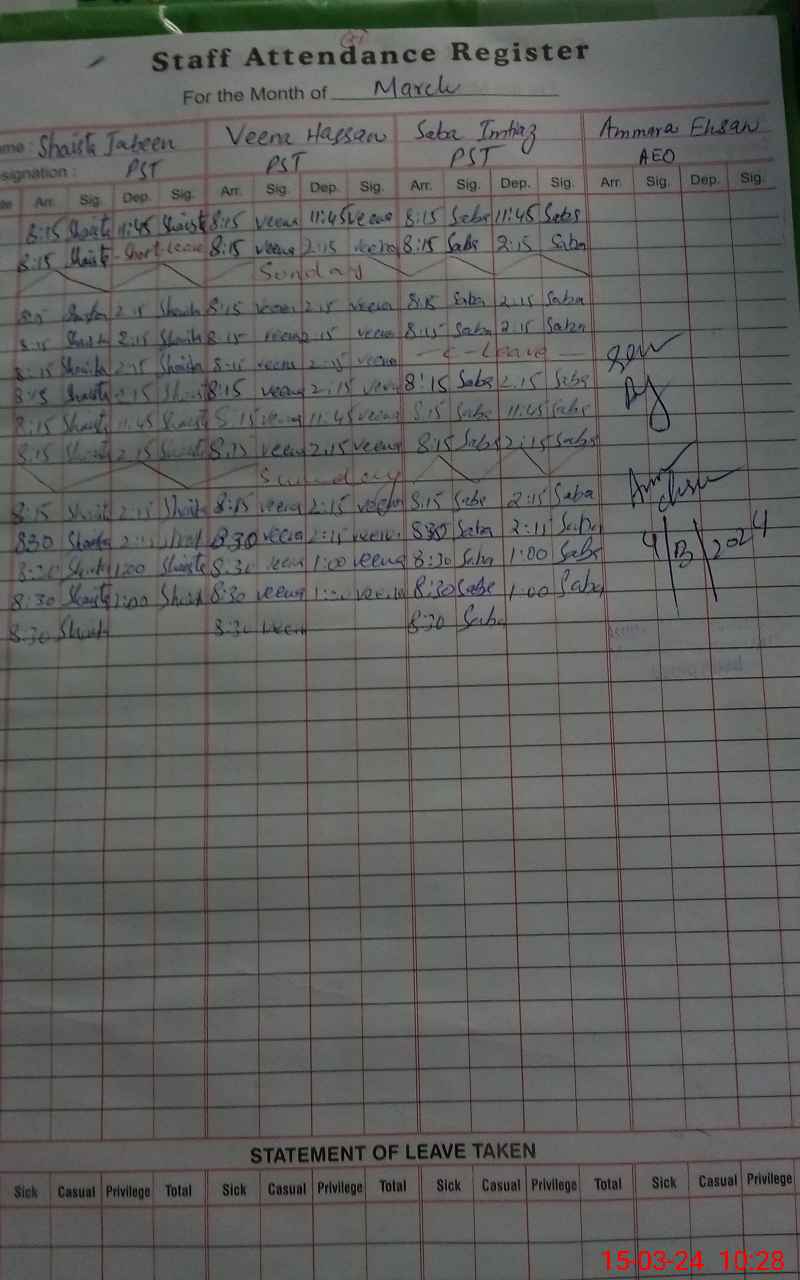 Staff Attendance Register
For the Month of March
ame : Shaista Jabeen Veena Hassan Saba Imtiaz Ammara Ehsan
signation : PST PST PST AEO
Arr. Sig. Dep. Sig. Arr. Sig. Dep. Sig. Arr. Sig. Dep. Sig. Arr. Sig. Dep. Sig.
8:15 Shaista 11:45 Shaista 8:15 veena 11:45 veena 8:15 Saba 11:45 Saba
8:15 Shaista Short leave 8:15 veena 2:15 veena 8:15 Saba 2:15 Saba
Sunday
Shaista 2:15 Shaista 8:15 veena 2:15 veena 8:15 Saba 2:15 Saba
8:15 Shaista 2:15 Shaista 8:15 veena 2:15 veena 8:15 Saba 2:15 Saba
8:15 Shaista 2:15 Shaista 8:15 veena 2:15 veena Leave
8:15 Shaista 2:15 Shaista 8:15 veena 2:15 veena 8:15 Saba 2:15 Saba
8:15 Shaista 11:45 Shaista 8:15 veena 11:45 veena 8:15 Saba 11:45 Saba
8:15 Shaista 2:15 Shaista 8:15 veena 2:15 veena 8:15 Saba 2:15 Saba
Sunday
8:15 Shaista 2:15 Shaista 8:15 veena 2:15 veena 8:15 Saba 2:15 Saba
830 Shaista 2:15 830 veena 2:15 veena 830 Saba 2:15 Saba
8:30 Shaista 1:00 Shaista 8:30 veena 1:00 veena 8:30 Saba 1:00 Saba
8:30 Shaista 1:00 Shaista 8:30 veena 1:00 veena 8:30 Saba 1:00 Saba
8:30 Shaista 8:30 veena 8:30 Saba
2024
STATEMENT OF LEAVE TAKEN
Sick Casual Privilege Total Sick Casual Privilege Total Sick Casual Privilege Total Sick Casual Privilege
15-03-24 10:28